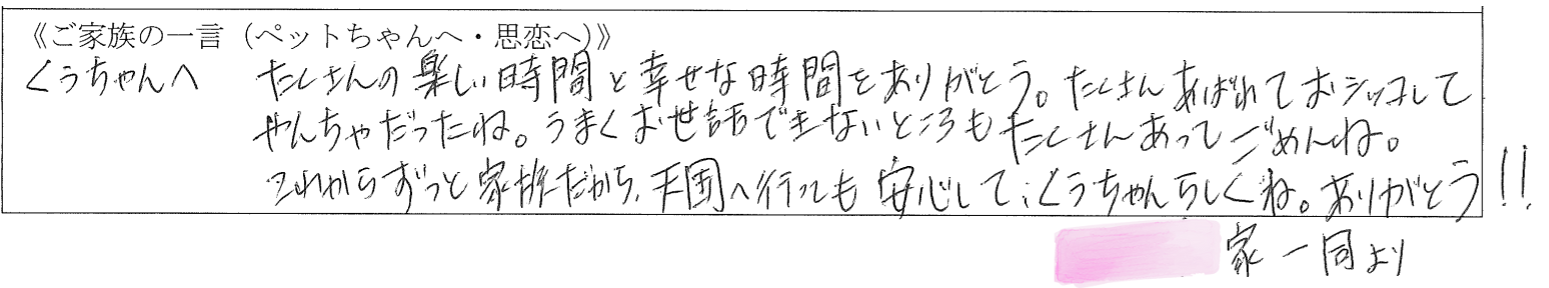 《ご家族の一言（ペットちゃんへ・思恋へ）》
くぅちゃんへ　たくさんの楽しい時間と幸せな時間をありがとう。たくさんあばれておシッコして
やんちゃだったね。うまくお世話できないところもたくさんあってごめんね。
これからずっと家族だから、天国へ行っても安心して、くぅちゃんらしくね。ありがとう!!
家一同より